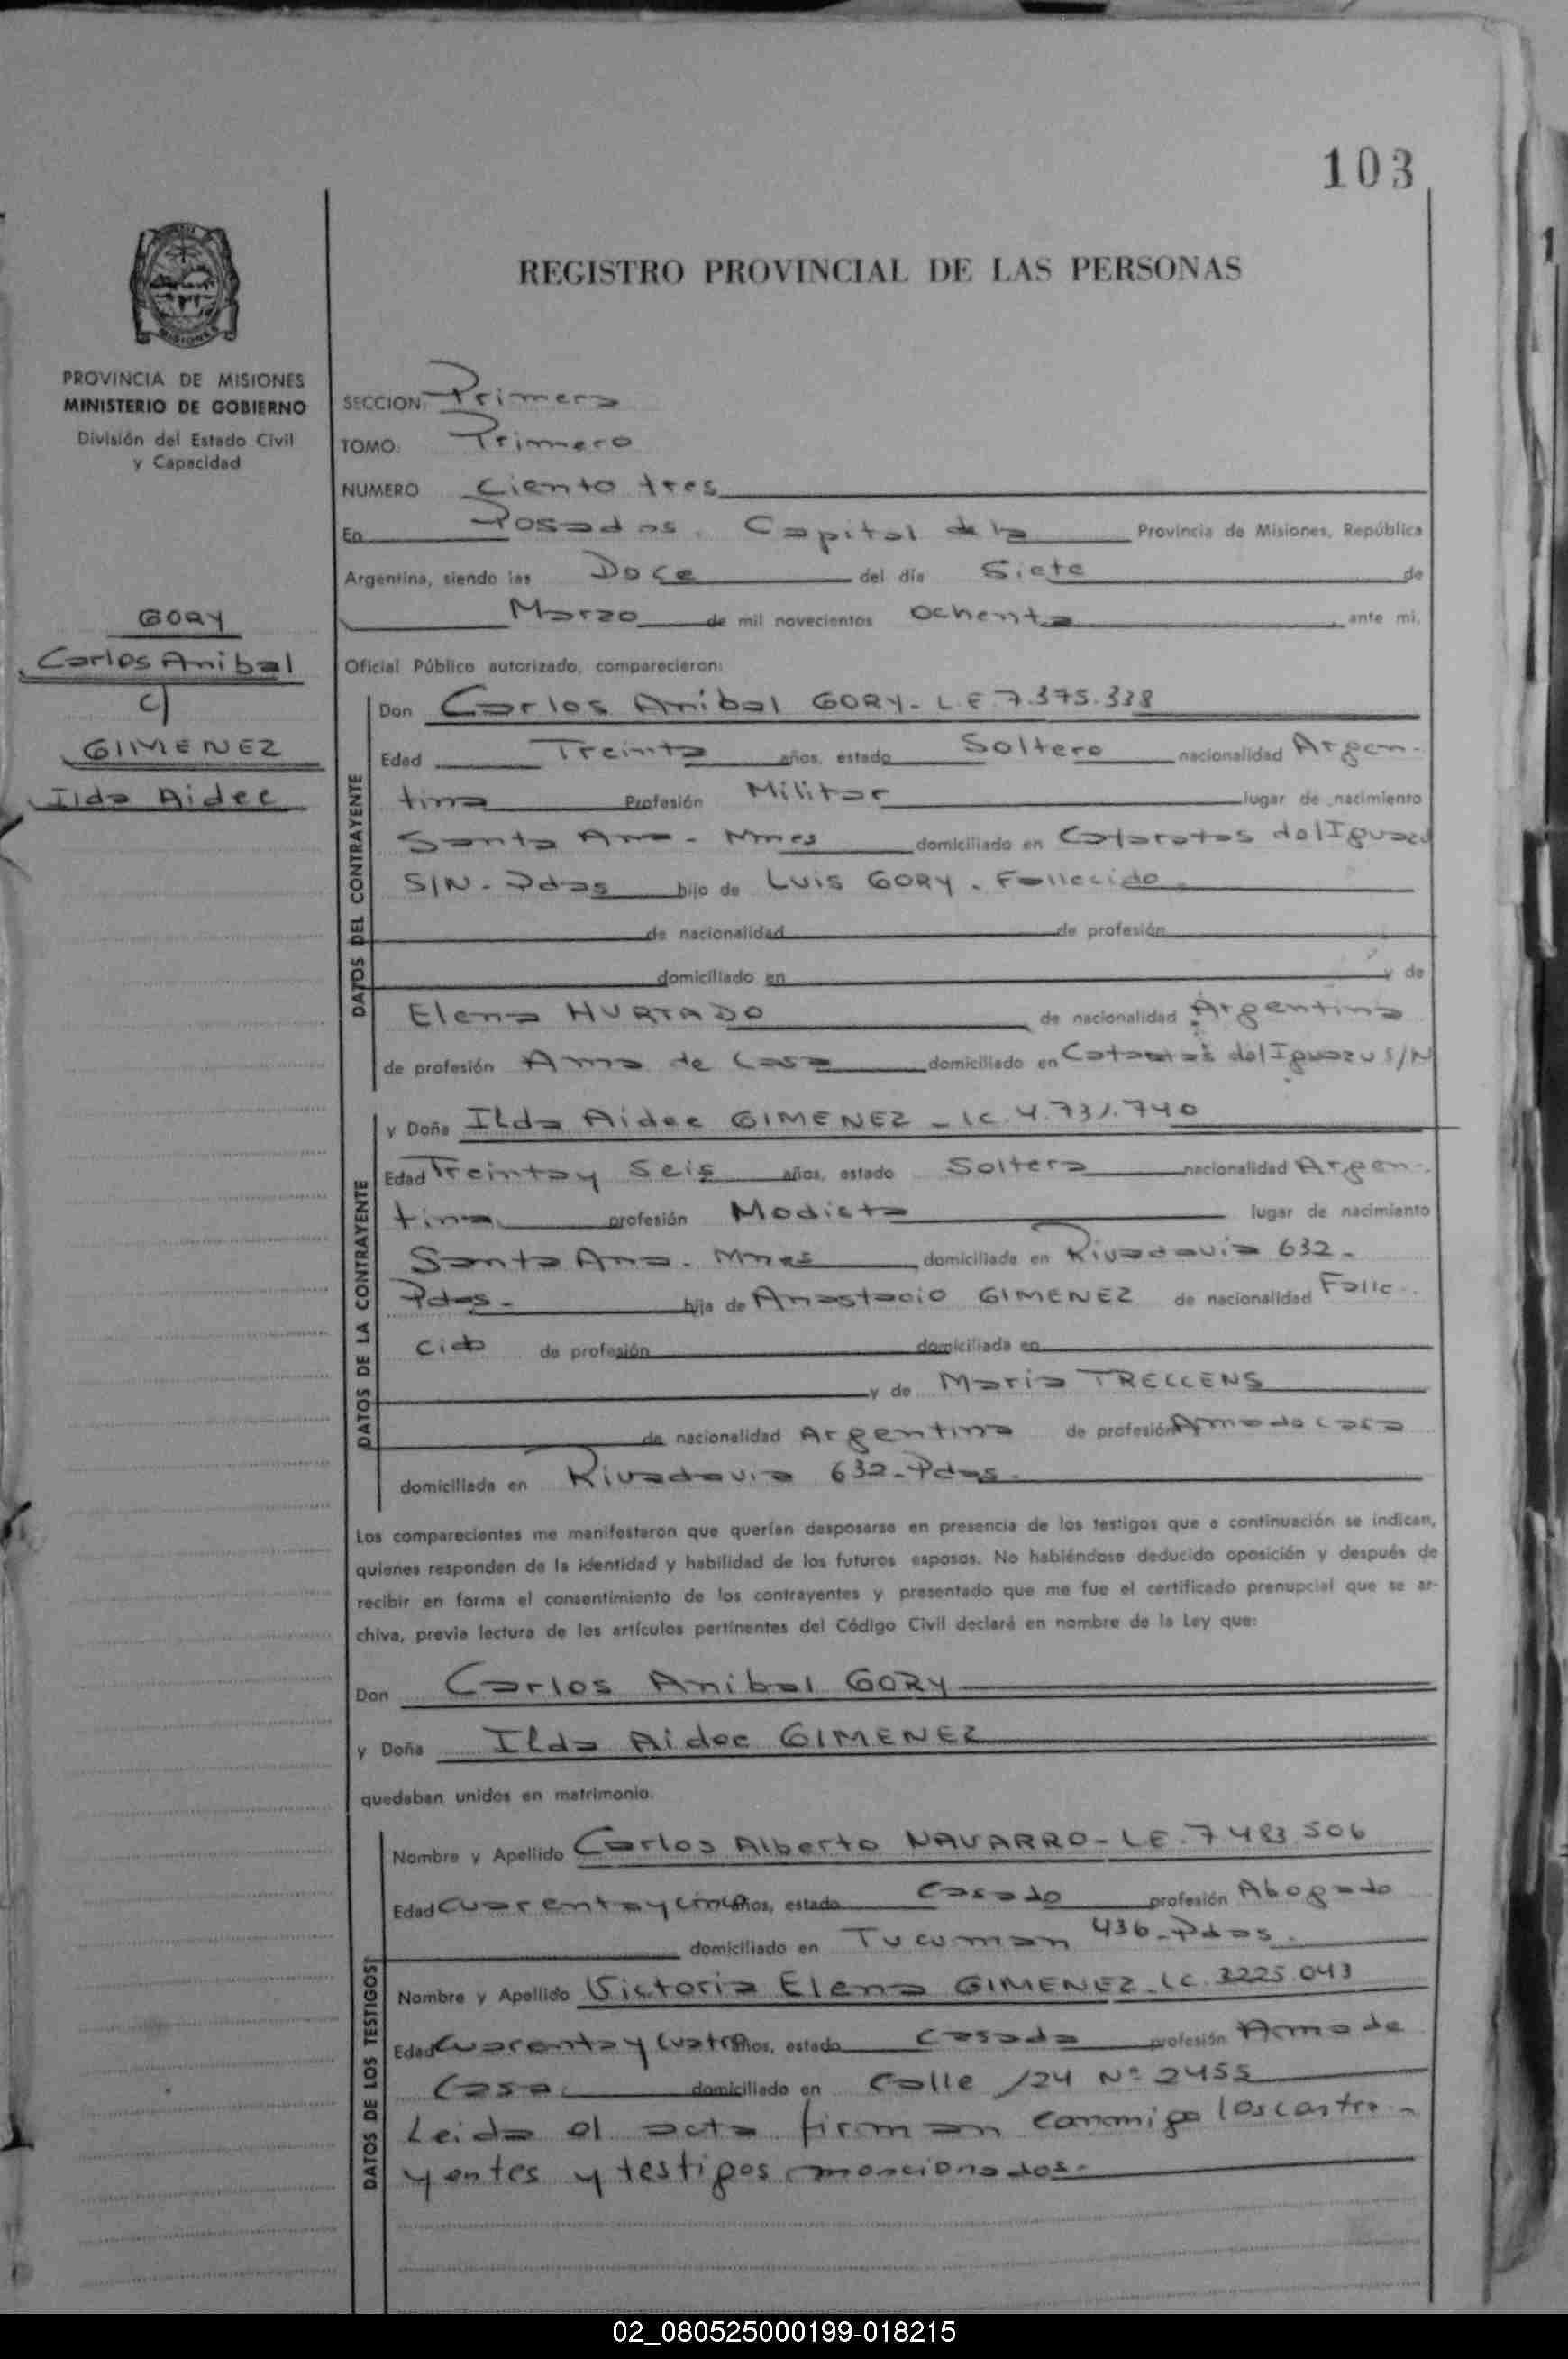 103
REGISTRO PROVINCIAL DE LAS PERSONAS
MISIONES
PROVINCIA DE MISIONES
MINISTERIO DE GOBIERNO
División del Estado Civil
y Capacidad
GORY
Carlos Anibal
c/
GIMENEZ
Ilda Aidee
SECCION: Primera
TOMO: Primero
NUMERO Ciento tres
En Posadas. Capital de la Provincia de Misiones, República
Argentina, siendo las Doce del día Siete de
Marzo de mil novecientos Ochenta ante mi,
Oficial Público autorizado, comparecieron:
DATOS DEL CONTRAYENTE
Don Carlos Anibal GORY- L.E 7.375.338
Edad Treinta años, estado Soltero nacionalidad Argen-
tina Profesión Militar lugar de nacimiento
Santa Ana - Mnes domiciliado en Cataratas del Iguazu
S/N - Pdas hijo de Luis GORY. Fallecido
de nacionalidad de profesión
domiciliado en y de
Elena HURTADO de nacionalidad Argentina
de profesión Ama de Casa domiciliado en Cataratas del Iguazu S/N
DATOS DE LA CONTRAYENTE
y Doña Ilda Aidee GIMENEZ - LC. 4.731.740
Edad Treinta y Seis años, estado Soltera nacionalidad Argen-
tina profesión Modista lugar de nacimiento
Santa Ana. Mnes domiciliada en Rivadavia 632-
Pdas- hija de Anastacio GIMENEZ de nacionalidad Falle-
cido de profesión domiciliada en
y de Maria TRECCENS
de nacionalidad Argentina de profesión Ama de casa
domiciliada en Rivadavia 632-Pdas.
Los comparecientes me manifestaron que querían desposarse en presencia de los testigos que a continuación se indican,
quienes responden de la identidad y habilidad de los futuros esposos. No habiéndose deducido oposición y después de
recibir en forma el consentimiento de los contrayentes y presentado que me fue el certificado prenupcial que se ar-
chiva, previa lectura de los artículos pertinentes del Código Civil declaré en nombre de la Ley que:
Don Carlos Anibal GORY
y Doña Ilda Aidee GIMENEZ
quedaban unidos en matrimonio.
DATOS DE LOS TESTIGOS
Nombre y Apellido Carlos Alberto NAVARRO- LE. 7 483.506
Edad Cuarenta y cinco años, estado Casado profesión Abogado
domiciliado en Tucuman 436-Pdas.
Nombre y Apellido Victoria Elena GIMENEZ-LC. 3225 043
Edad Cuarenta y Cuatro años, estado Casada profesión Ama de
Casa. domiciliado en Calle 124 Nº 2455
Leida el acta firman conmigo los contra-
yentes y testigos mencionados-
02_080525000199-018215